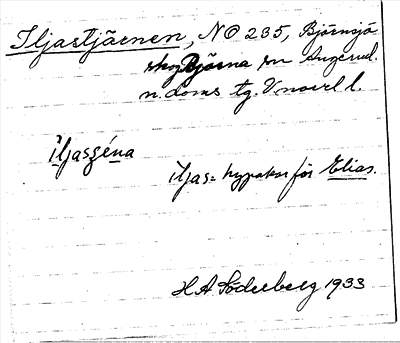 Iljastjärnen, NO 235, Björnsjö
skog Björna sn Ångerml.
n. doms tg. V
iljasʒéna
iljas = hypokor för Elias.
H A Söderberg 1933